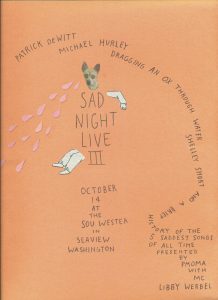 PATRICK DEWITT
MICHAEL HURLEY
DRAGGING AN OX THROUGH WATER
SHELLEY SHORT
AND A BRIEF
HISTORY OF
SADDEST SONGS
OF ALL TIME
PRESENTED
BY
PMOMA
WITH
MC
LIBBY WERBEL
SAD
NIGHT
LIVE
III
OCTOBER
14
AT
THE
SOU'WESTER
IN
SEAVIEW
WASHINGTON